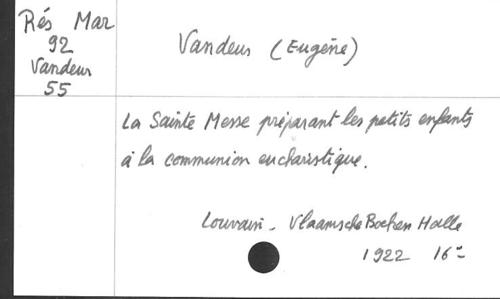 Rés Mar
92
Vandeur
55
Vandeur (Eugène)
La Sainte Messe préparant les petits enfants
à la communion eucharistique.
Louvain - Vlaamsche Boeken Halle
1922 16°